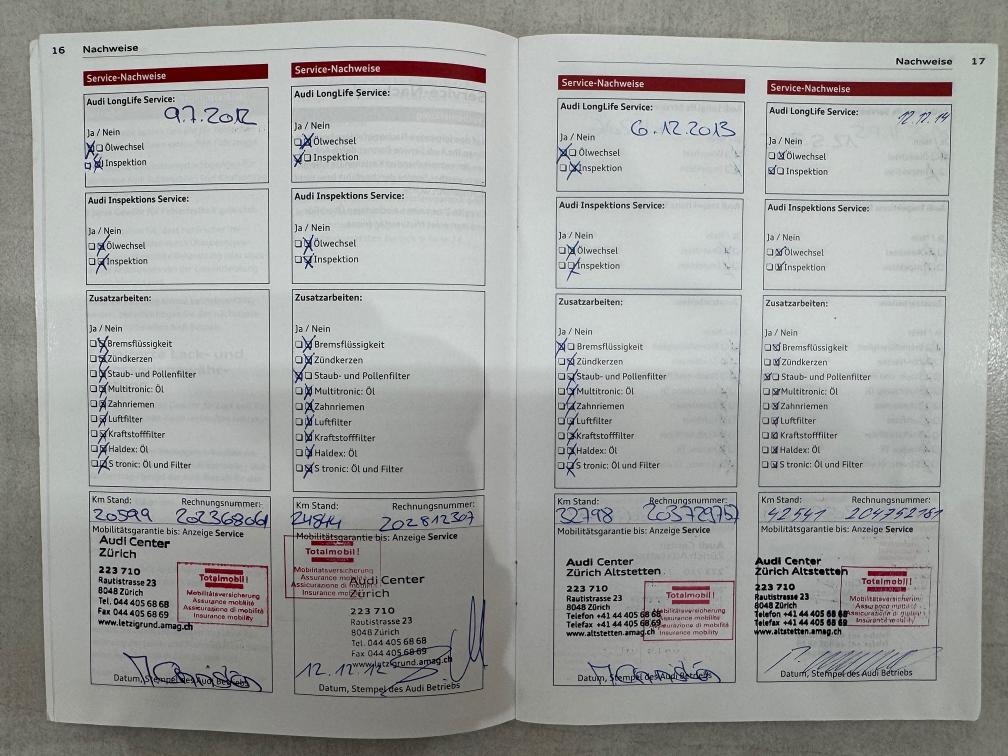 16 Nachweise
Service-Nachweise
Audi LongLife Service:
9.7.2012
Ja / Nein
Ölwechsel
Inspektion
Audi Inspektions Service:
Ja / Nein
Ölwechsel
Inspektion
Zusatzarbeiten:
Ja / Nein
Bremsflüssigkeit
Zündkerzen
Staub- und Pollenfilter
Multitronic: Öl
Zahnriemen
Luftfilter
Kraftstofffilter
Haldex: Öl
S tronic: Öl und Filter
Km Stand: Rechnungsnummer:
20599 202368061
Mobilitätsgarantie bis: Anzeige Service
Audi Center
Zürich
223 710
Rautistrasse 23
8048 Zürich
Tel. 044 405 68 68
Fax 044 405 68 69
www.letzigrund.amag.ch
Totalmobil!
Mobilitätsversicherung
Assurance mobilité
Assicurazione di mobilità
Insurance mobility
Datum, Stempel des Audi Betriebs
Service-Nachweise
Audi LongLife Service:
Ja / Nein
Ölwechsel
Inspektion
Audi Inspektions Service:
Ja / Nein
Ölwechsel
Inspektion
Zusatzarbeiten:
Ja / Nein
Bremsflüssigkeit
Zündkerzen
Staub- und Pollenfilter
Multitronic: Öl
Zahnriemen
Luftfilter
Kraftstofffilter
Haldex: Öl
S tronic: Öl und Filter
Km Stand: Rechnungsnummer:
202812307
Mobilitätsgarantie bis: Anzeige Service
Totalmobil!
Mobilitätsversicherung
Assurance mobilité
Assicurazione di mobilità
Insurance mobility
Audi Center
Zürich
223 710
Rautistrasse 23
8048 Zürich
Tel. 044 405 68 68
Fax 044 405 68 69
www.letzigrund.amag.ch
12.12.12
Datum, Stempel des Audi Betriebs
Nachweise 17
Service-Nachweise
Audi LongLife Service:
6.12.2013
Ja / Nein
Ölwechsel
Inspektion
Audi Inspektions Service:
Ja / Nein
Ölwechsel
Inspektion
Zusatzarbeiten:
Ja / Nein
Bremsflüssigkeit
Zündkerzen
Staub- und Pollenfilter
Multitronic: Öl
Zahnriemen
Luftfilter
Kraftstofffilter
Haldex: Öl
S tronic: Öl und Filter
Km Stand: Rechnungsnummer:
32798 203729757
Mobilitätsgarantie bis: Anzeige Service
Audi Center
Zürich Altstetten
223 710
Rautistrasse 23
8048 Zürich
Telefon +41 44 405 68 68
Telefax +41 44 405 68 69
www.altstetten.amag.ch
Totalmobil!
Mobilitätsversicherung
Assurance mobilité
Assicurazione di mobilità
Insurance mobility
Datum, Stempel des Audi Betriebs
Service-Nachweise
Audi LongLife Service:
12.12.14
Ja / Nein
Ölwechsel
Inspektion
Audi Inspektions Service:
Ja / Nein
Ölwechsel
Inspektion
Zusatzarbeiten:
Ja / Nein
Bremsflüssigkeit
Zündkerzen
Staub- und Pollenfilter
Multitronic: Öl
Zahnriemen
Luftfilter
Kraftstofffilter
Haldex: Öl
S tronic: Öl und Filter
Km Stand: Rechnungsnummer:
42541 204752161
Mobilitätsgarantie bis: Anzeige Service
Audi Center
Zürich Altstetten
223 710
Rautistrasse 23
8048 Zürich
Telefon +41 44 405 68 68
Telefax +41 44 405 68 69
www.altstetten.amag.ch
Totalmobil!
Mobilitätsversicherung
Assurance mobilité
Assicurazione di mobilità
Insurance mobility
Datum, Stempel des Audi Betriebs